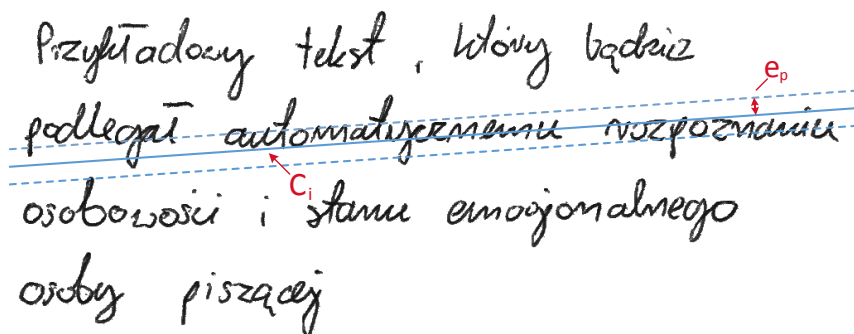 Przykładowy tekst, który bądzie
e_p
podlegał automatycznemu rozpoznaniu
C_i
osobowości i stanu emocjonalnego
osoby piszącej